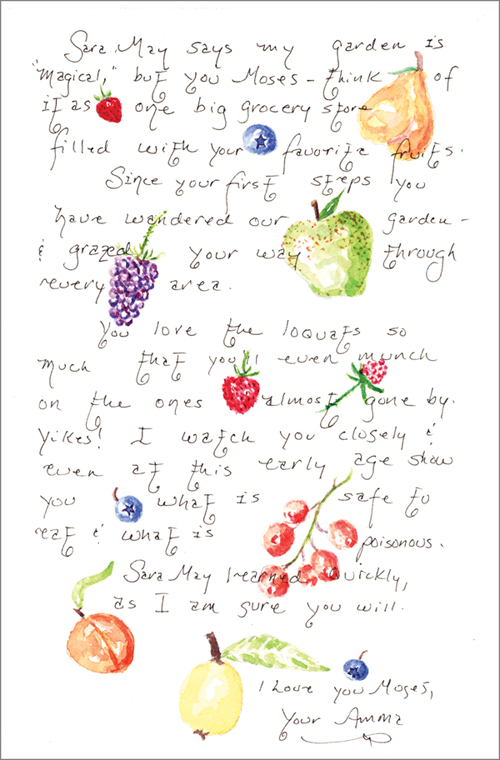 Sara May says my garden is
"Magical," but you Moses - think of
it as one big grocery store
filled with your favorite fruits.
Since your first steps you
have wandered our garden -
& grazed your way through
every area.
You love the loquats so
much that you'll even munch
on the ones almost gone by.
Yikes! I watch you closely &
even at this early age show
you what is safe to
eat & what is poisonous.
Sara May learned quickly,
as I am sure you will.
I Love you Moses,
Your Amma